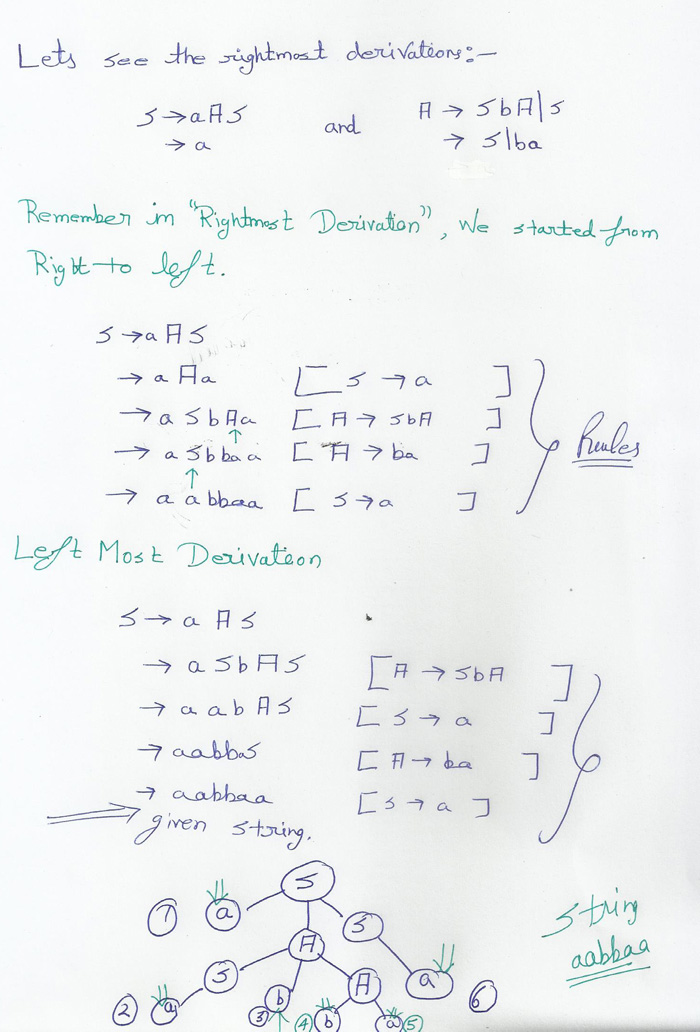 Lets see the rightmost derivations:—
S → aAS and A → SbA|S
→ a → S|ba
Remember in "Rightmost Derivation", We started from
Right to left.
S → aAS
→ aAa [ S → a ]
→ aSbAa [ A → SbA ]
→ aSbbaa [ A → ba ] Rules
→ aabbaa [ S → a ]
Left Most Derivation
S → aAS
→ aSbAS [ A → SbA ]
→ aabAS [ S → a ]
→ aabbaS [ A → ba ]
→ aabbaa [ S → a ]
given string.
S
1 a S String
A aabbaa
S b A a 6
2 a 3 4 b a 5